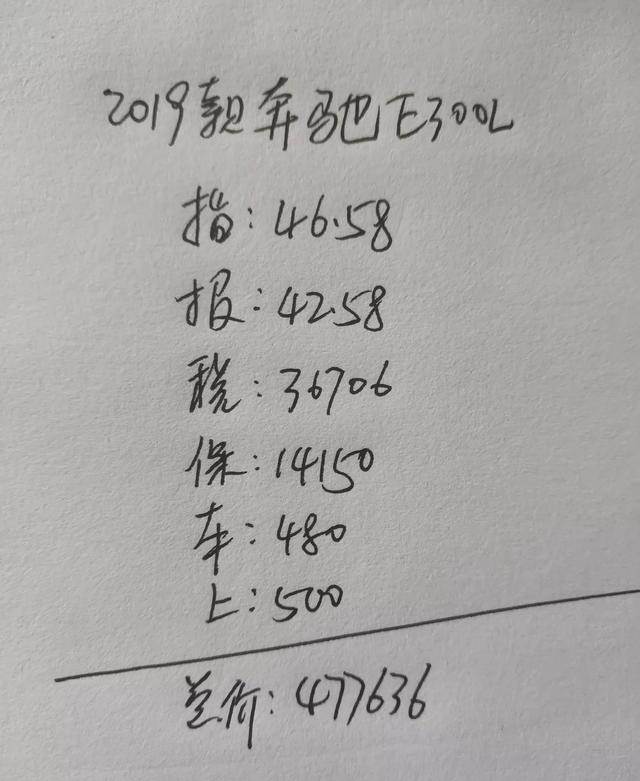 2019款奔驰E300L
指:46.58
报:42.58
税:36706
保:14150
车:480
上:500
总价:477636